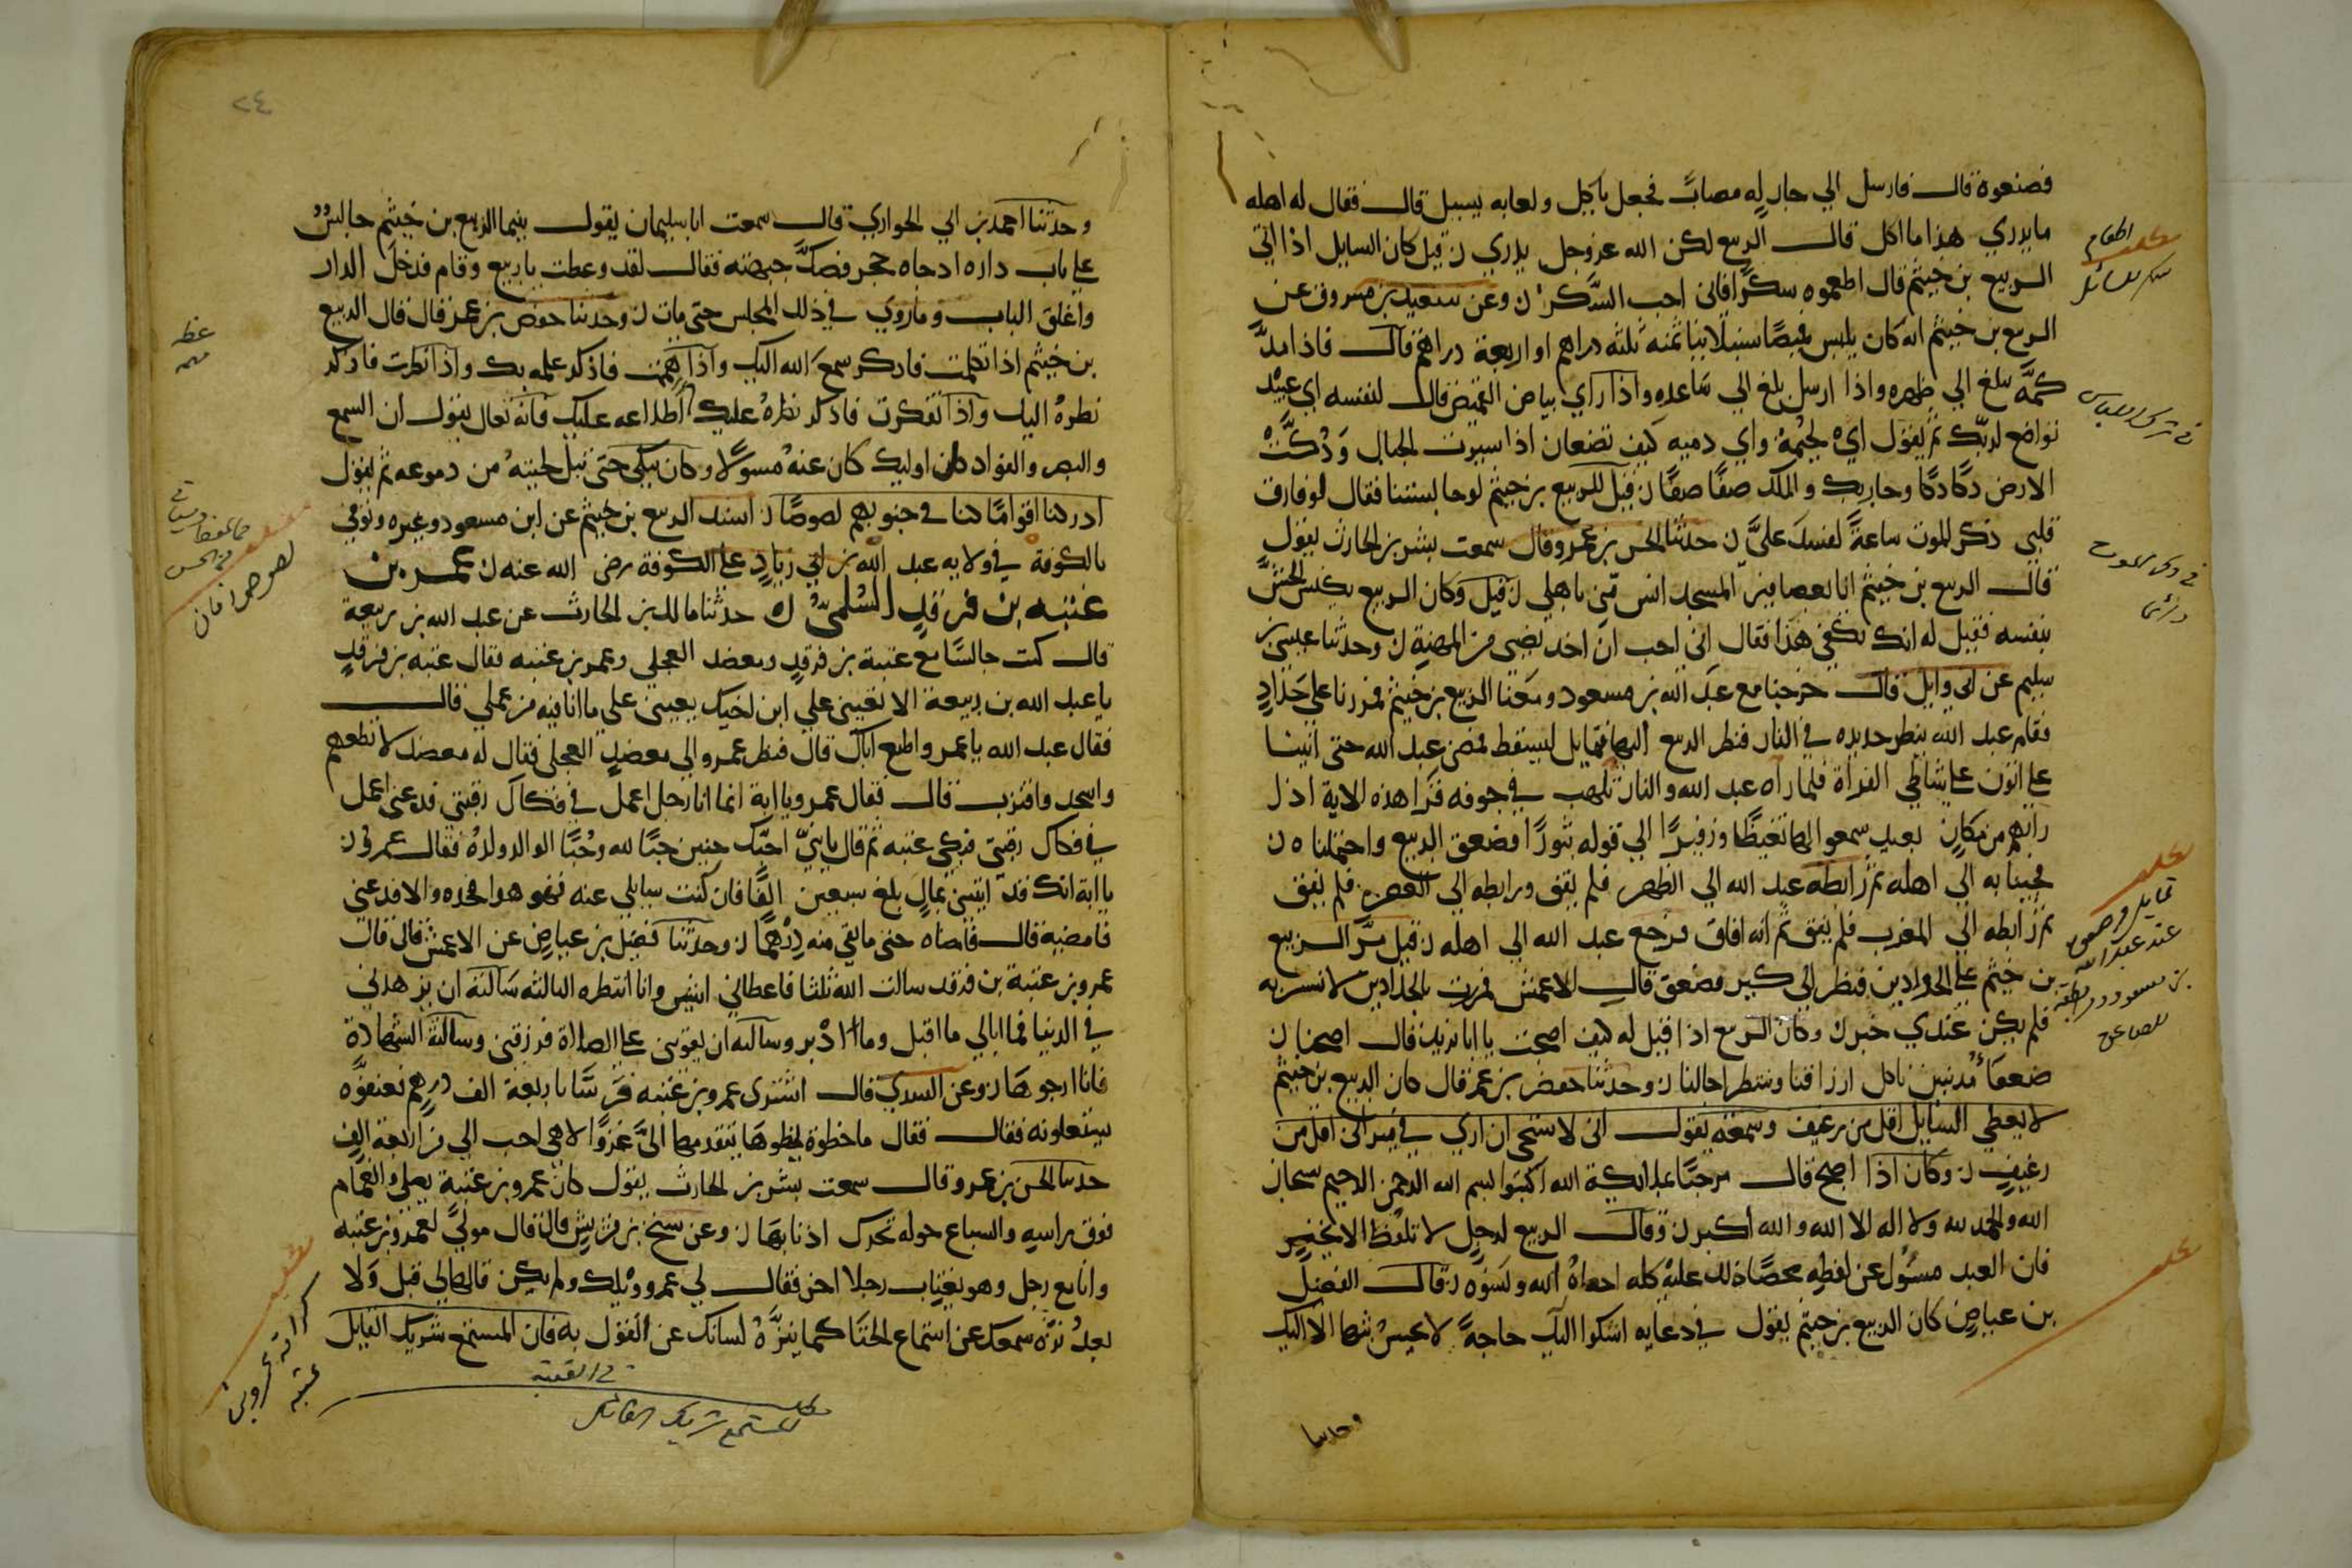 فصنعوه قال فارسل الي جار له مصاب فجعل ياكل ولعابه يسيل قال فقال له اهله
ما يدري هذا ما اكل قال الربيع لكن الله عز وجل يدري ن قيل كان السايل اذا اتي
الربيع بن خيثم قال اطعموه سكرا فاني احب السكر ن وعن سعيد بن مسروق عن
الربيع بن خيثم انه كان يلبس قميصا سنبلانيا ثمنه ثلثه دراهم او اربعة دراهم قال فاذا مد
كمه بلغ الي ظهره واذا ارسل بلغ الي ساعده واذا راي بياض القميص قال لنفسه اي عبيد
تواضع لربك ثم يقول اي لحيمة واي دميه كيف تصنعان اذا سيرت الجبال ودكت
الارض دكا دكا وجا ربك والملك صفا صفا ن قيل للربيع بن خيثم لو جالستنا فقال لو فارق
قلبي ذكر الموت ساعة لفسد علي ن حدثنا الحسن بن عمرو قال سمعت بشر بن الحارث يقول
قال الربيع بن خيثم انا بعصافير المسجد انس مني باهلي ن قيل وكان الربيع يكنس الحش
بنفسه فقيل له انك تكفي هذا فقال اني احب ان اخذ نصيبي من المهنة ن وحدثنا عيسي بن
سليم عن ابي وايل قال خرجنا مع عبد الله بن مسعود ومعنا الربيع بن خيثم فمررنا علي حداد
فقام عبد الله ينظر حديده في النار فنظر الربيع اليها فتمايل ليسقط فمضي عبد الله حتي اتينا
علي اتون علي شاطي الفراة فلما راه عبد الله والنار تلهب في جوفه قرا هذه الاية اذا
راتهم من مكان بعيد سمعوا لها تغيظا وزفيرا الي قوله ثبورا فصعق الربيع واحتملناه ن
فجينا به الي اهله ثم رابطه عبد الله الي الظهر فلم يفق ورابطه الي العصر فلم يفق
ثم رابطه الي المغرب فلم يفق ثم انه افاق فرجع عبد الله الي اهله ن قيل مر الربيع
بن خيثم علي الحدادين فنظر الي كير فصعق قال الاعمش فمررت بالحدادين لاتشبه به
فلم يكن عندي خير ن وكان الربيع اذا قيل له كيف اصبحت يا ابا يزيد قال اصبحنا
ضعفا مذنبين ناكل ارزاقنا وننتظر اجالنا ن وحدثنا حفص بن عمر قال كان الربيع بن خيثم
لا يعطي السايل اقل من رغيف وسمعته يقول اني لاستحي ان اري في ميزاني اقل من
رغيف ن وكان اذا اصبح قال مرحبا بملائكة الله اكتبوا بسم الله الرحمن الرحيم سبحان
الله والحمد لله ولا اله الا الله والله اكبر ن وقال الربيع لرجل لا تلفظ الا بخير
فان العبد مسؤل عن لفظه محصا ذلك عليه كله احصاه الله ونسوه ن قال الفضيل
بن عياض كان الربيع بن خيثم يقول في دعايه اشكوا اليك حاجة لا يحسن بثها الا اليك
وحدثنا
مطلب
اطعام
سكر للسائل
في ذكر الموت
مطلب
تمايل وصعق
عند عبد الله
بن مسعود
مطلب
٢٤
وحدثنا احمد بن ابي الحواري قال سمعت ابا سليمان يقول بينما الربيع بن خيثم جالس
علي باب داره اذ جاه حجر فصك جبهته فقال لقد وعظت يا ربيع وقام فدخل الدار
واغلق الباب وما روي في ذلك المجلس حتي مات ن وحدثنا حفص بن عمر قال قال الربيع
بن خيثم اذا تكلمت فاذكر سمع الله اليك واذا هممت فاذكر علمه بك واذا نظرت فاذكر
نظره اليك واذا تفكرت فاذكر نظره عليك اطلاعه عليك فانه تعالي يقول ان السمع
والبصر والفواد كل اوليك كان عنه مسولا وكان يبكي حتي تبل لحيته من دموعه ثم يقول
ادركنا اقواما كنا في جنوبهم لصوصا ن اسند الربيع بن خيثم عن ابن مسعود وغيره وتوفي
بالكوفة في ولايه عبد الله بن ابي زياد علي الكوفة رضي الله عنه ن عمرو بن
عتبه بن فرقد السلمي ن حدثنا مالك بن الحارث عن عبد الله بن ربيعة
قال كنت جالسا مع عتبة بن فرقد ومعضد العجلي وعمرو بن عتبه فقال عتبه بن فرقد
يا عبد الله بن ربيعة الا تعيني علي ابن اخيك يعينني علي ما انا فيه من عملي قال
فقال عبد الله يا عمرو اطع اباك قال فنظر عمرو الي معضد العجلي فقال له معضد لا تطعهم
واسجد واقترب قال فقال عمرو يا ابة انما انا رجل اعمل في فكاك رقبتي فدعني اعمل
في فكاك رقبتي فبكي عتبه ثم قال يا بني احبك حبين حبا لله وحب الوالد ولده فقال عمرو
يا ابة انك قد اتيتني بمال بلغ سبعين الفا فان كنت سايلي عنه فهو هوا فخذه والا فدعني
فامضيه قال فامضاه حتي ما بقي منه درهما ن وحدثنا فضيل بن عياض عن الاعمش قال قال
عمرو بن عتبة بن فرقد سالت الله ثلثا فاعطاني اثنين وانا انتظر الثالثه سالته ان يزهدني
في الدنيا فما ابالي ما اقبل وما ادبر وسالته ان يقويني علي الصلاة فرزقني وسالته الشهادة
فانا ارجوها ن وعن السدي قال اشتري عمرو بن عتبه فرسا باربعة الف درهم فعنفوه
يستغلونه فقال ما خطوة يخطوها يتقدمها الي غزو الا هي احب الي من اربعة الف
حدثنا الحسن بن عمرو قال سمعت بشر بن الحارث يقول كان عمرو بن عتبة يصلي والغمام
فوق راسه والسباع حوله تحرك اذنابها ن وعن قال قال مولي لعمرو بن عتبه
وانا مع رجل وهو يغتاب رجلا اخر فقال لي عمرو ويلك ولم يكن قالها لي قبل ولا
بعد نزه سمعك عن استماع الخنا كما ينزه لسانك عن القول به فان المستمع شريك القايل
في الغيبة
مطلب المستمع شريك القائل
مطلب
كرامة عمرو بن
عتبه